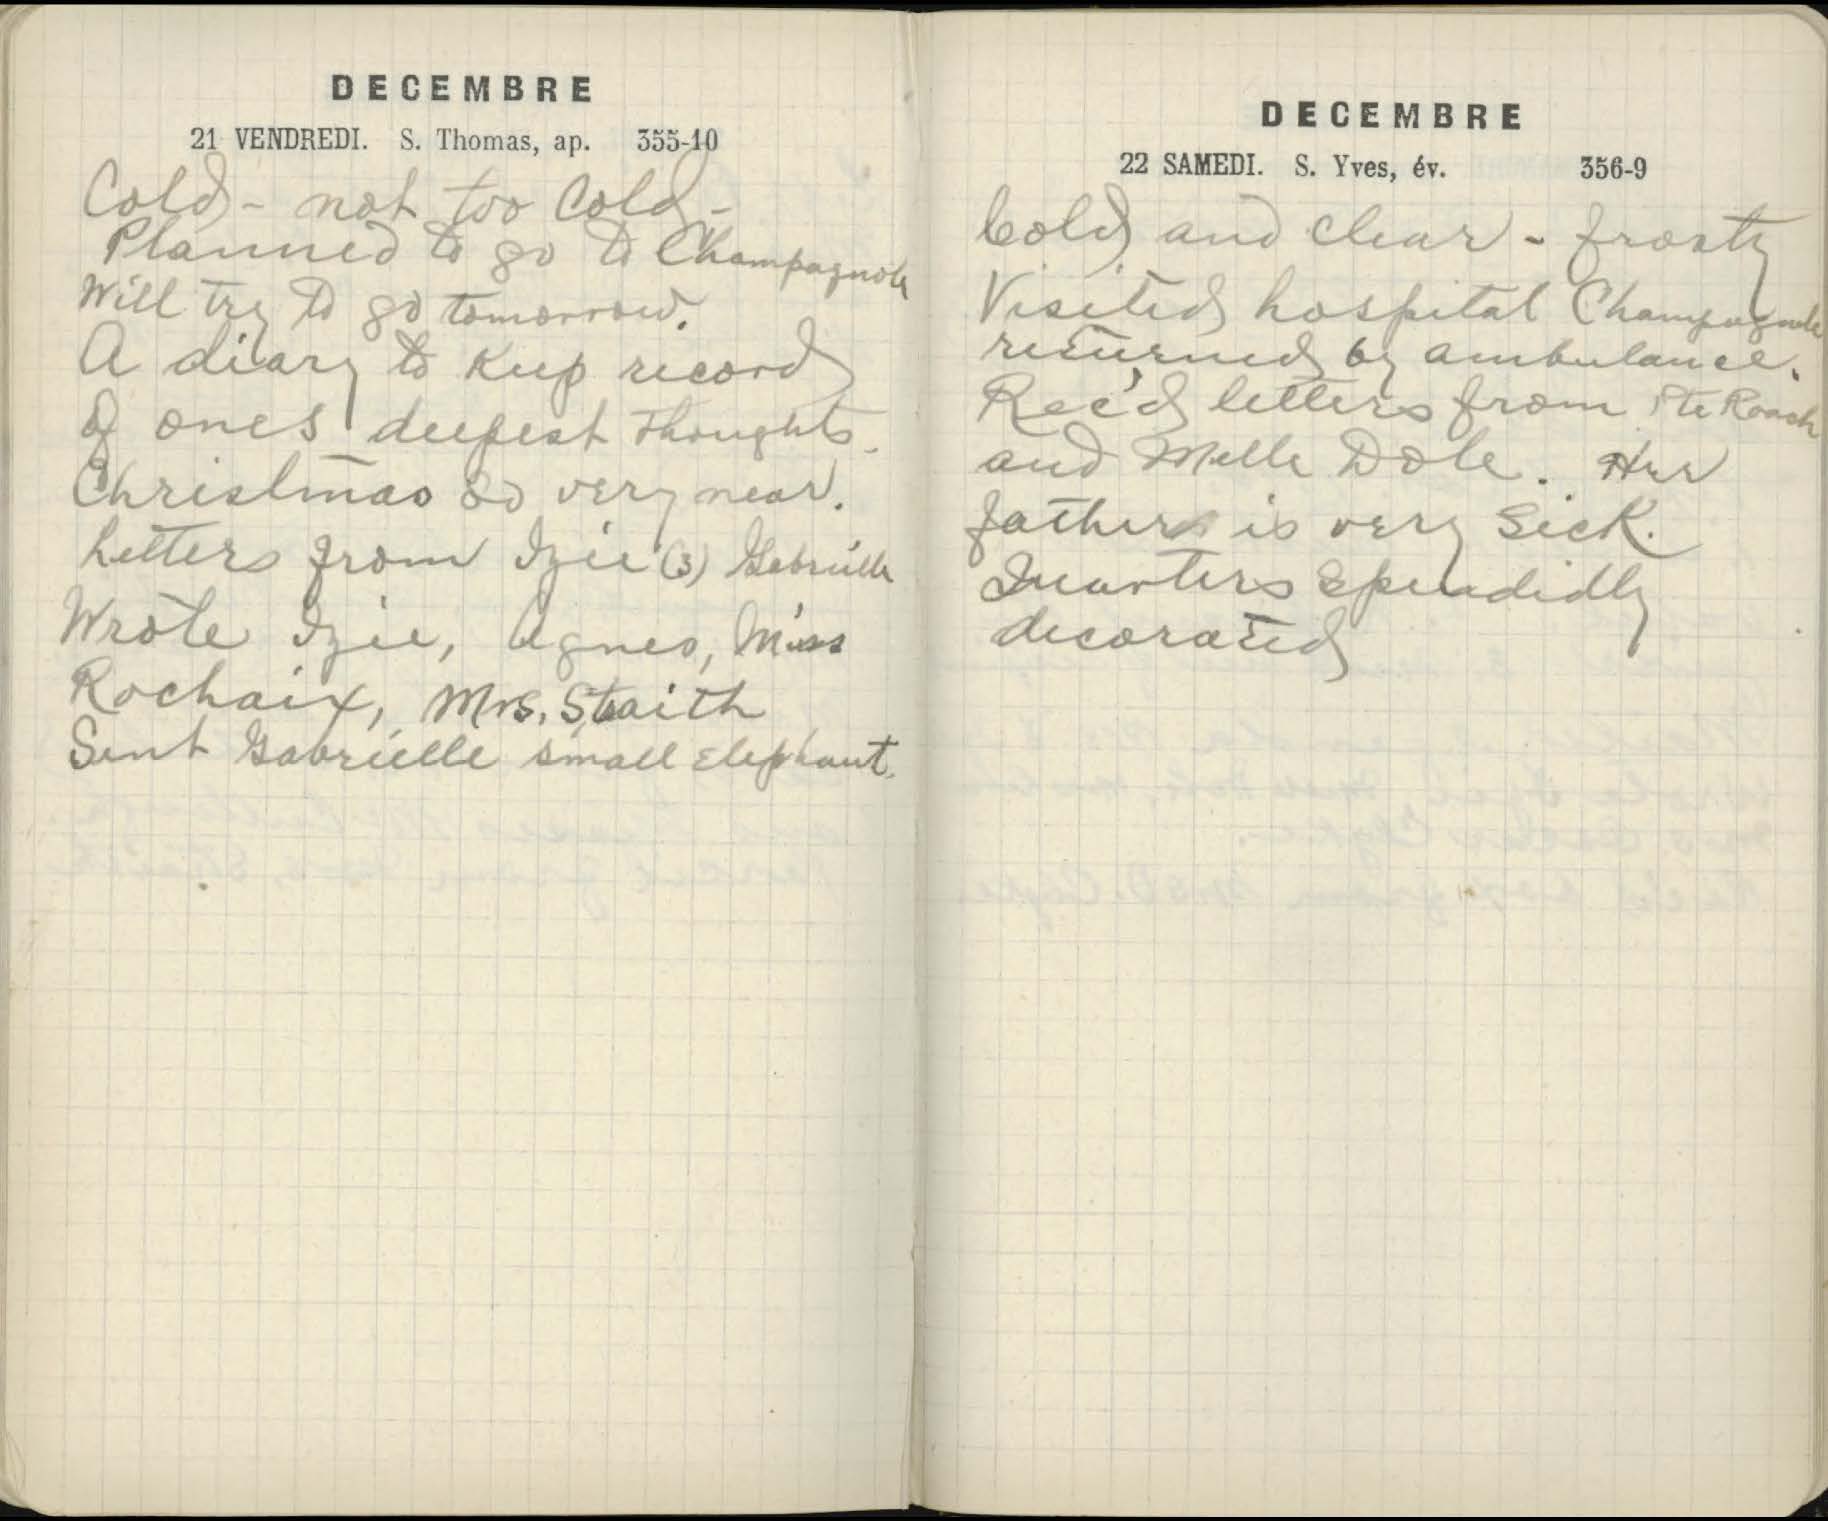 DECEMBRE
21 VENDREDI. S. Thomas, ap. 355-10
Cold - not too Cold -
Planned to go to Champagnole
Will try to go tomorrow.
A diary to keep record
of ones deepest thoughts.
Christmas so very near.
Letters from Izie (3) Gabrielle
Wrote Izie, Agnes, Miss
Rochaix, Mrs. Staith
Sent Gabrielle small Elephant.
DECEMBRE
22 SAMEDI. S. Yves, év. 356-9
Cold and clear - frosty
Visited hospital Champagnole
returned by ambulance.
Rec'd letters from Pte Roach
and Melle Dole. Her
father is very Sick.
Quarters Spendidly
decorated